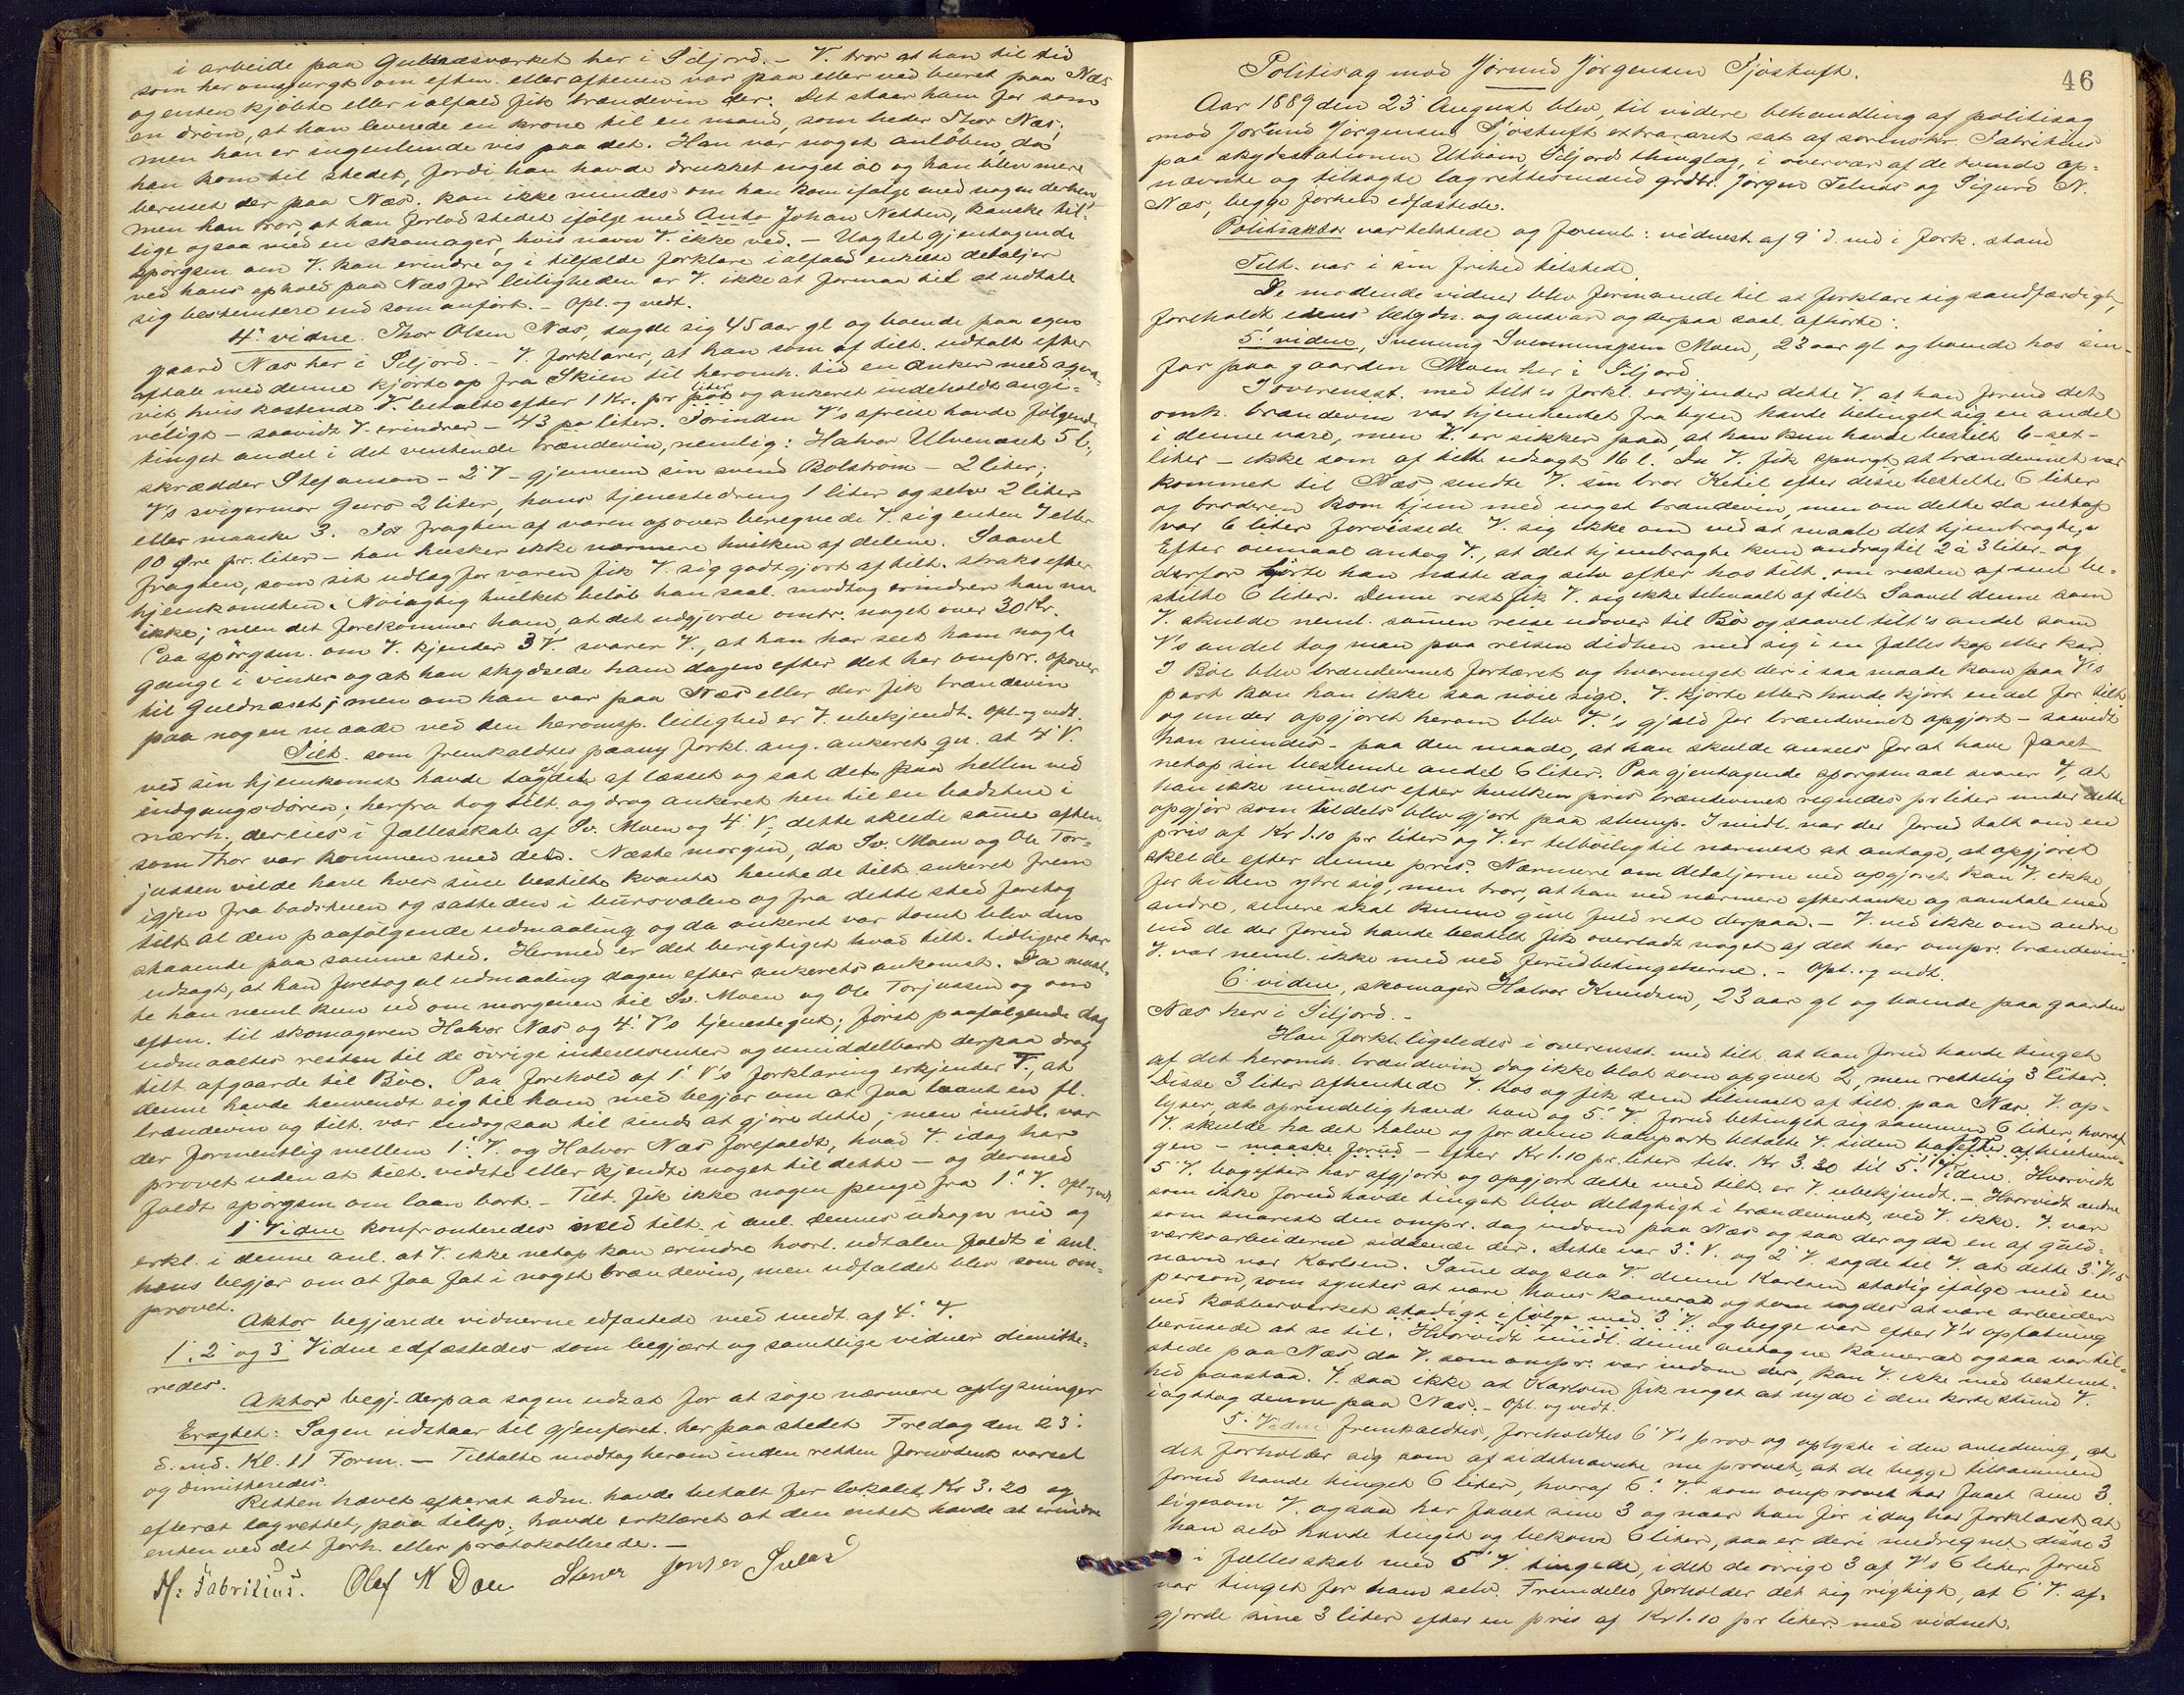 i arbeide paa Guldnæsværket her i Siljord. - V. tror at han til tid
som her omspurgt om eften. eller aftenen var paa eller ved buret paa Næs
og enten kjöbte eller ialfald fik brændevin der. Det staar ham for som
en dröm, at han leverede en krone til en mand, som heder Thor Næs;
men han er ingenlunde vis paa det. Han var noget anlöben, da
han kom til stedet, fordi han havde drukket noget öl og han blev mere
beruset der paa Næs. kan ikke mindes om han kom ifölge med nogen derhen,
men han tror, at han forlod stedet ifölge med Anta Johan Netten, kanske til-
lige ogsaa med en skomager, hvis navn V. ikke ved. - Uagtet gjentagende
spörgsm om V. kan erindre og i tilfælde forklare ialfald enkelte detaljer
ved hans ophold paa Næs før leiligheden er V. ikke at formaa til at udtale
sig bestemtere end som anfört. - Opl. og vedt.
4' vidne. Thor Olsen Næs, sagde sig 45 aar gl og boende paa egen
gaard Næs her i Siljord. - V. forklarer, at han som af tilt. udtalt efter
aftale med denne kjörte op fra Skien til heromh. tid en anker med aqva-
vit hvis kostende V. betalte efter 1 Kr. pr liter og ankeret indeholdt angi-
veligt - saavidt V. erindrer - 43 liter. Forinden V's afreise havde fölgende
tinget andel i det ventende brændevin, nemlig: Halvor Ulvenæset 5 l.,
skrædder Stefanson - 2' V - gjennem sin svend Bolström - 2 liter;
V's svigermor Guro 2 liter, hans tjenestedreng 1 liter og selv 2 liter
eller maaske 3. For fragten af varen opover beregnede V. sig enten 7 eller
10 Öre pr. liter - han husker ikke nærmere hvilken af delene. Saavel
fragten, som sit udlæg for varen fik V. sig godtgjort af tilt. straks efter
hjemkomsten. Nöiagtig hvilket belöb han saal. modtog erindrer han nu
ikke; men det forekommer ham, at det udgjorde omtr. noget over 30 Kr.
Paa spörgsm. om V. kjender 3' V. svarer V., at han har seet ham nogle
gange i vinter og at han skydsede ham dagen efter det her ompr. opover
til Guldnæset; men om han var paa Næs eller der fik brændevin
paa nogen maade ved den heromsp. leilighed er V. ubekjendt. Opl. og vedt.
Tilt. som fremkaldtes paany forkl. ang. ankeret gn. at 4' V.
ved sin hjemkomst havde taget det af læsset og sat det paa hellen ved
indgangsdören; herfra tog tilt. og drog ankeret hen til en badstue i
nærh., der eies i fællesskab af Sv. Moen og 4' V; dette skede samme aften
som Thor var kommen med det. Næste morgen, da Sv. Moen og Ole Tor-
jussen vilde have hver sine bestilte kvanta hentede tilt ankeret frem
igjen fra badstuen og satte den i bursvalen og fra dette sted foretog
tilt al den paafölgende udmaaling og da ankeret var tomt blev den
staaende paa samme sted. Hermed er det berigtiget hvad tilt. tidligere har
udsagt, at han foretog al udmaaling dagen efter ankerets ankomst. Da maat-
te han neml. kun ud om morgenen til Sv. Moen og Ole Torjussen og om
eften. til skomageren Halvor Næs og 4' V's tjenestegut; först paafölgende dag
udmaaltes resten til de övrige interessenter og umiddelbart derpaa drog
tilt afgaarde til Böe. Paa forehold af 1' V's forklaring erkjender T., at
denne havde henvendt sig til ham med begjær om at faa laant en fl.
brændevin og tilt. var endogsaa til sinds at gjöre dette; men imidl. var
der formentlig mellem 1' V. og Halvor Næs forefaldt, hvad V. idag har
provet uden at tilt. vidste eller kjendte noget til dette - og dermed
faldt spörgsm om laan bort. - Tilt. fik ikke nogen penge fra 1' V. Opl. og vedt.
1' Vidne konfronteredes med tilt. i anl. dennes udsagn nu og
erkl. i denne anl. at V. ikke netop kan erindre hvorl. udtalen faldt i anl.
hans begjær om at faa fat i noget brændevin, men udfaldet blev som om-
provet.
Aktor begjærede vidnerne edfæstede med undt. af 4' V.
1', 2' og 3' Vidne edfæstedes som begjært og samtlige vidner dimitte-
redes.
Aktor begj. derpaa sagen udsat for at söge nærmere oplysninger
Eragtet: Sagen udstaar til gjenforet. her paa stedet Fredag den 23'
d. md. Kl. 11 Form. - Tiltalte modtog herom inden retten fornödent varsel
og dimitteredes.
Retten hævet efterat adm. havde betalt for lokalet Kr 3.20 og
efterat lagrettet, paa tilsp., havde erklæret at den intet havde at erindre
enten ved det forh. eller protokollerede. -
H. Fabritius. Olaf N Dale Stener Jonsen
46
Politisag mod Jörund Jörgensen Sjöstuft.
Aar 1889 den 23' August blev, til videre behandling af politisag
mod Jörund Jörgensen Sjöstuft extraræt sat af sorenskr. Fabritius
paa skydsstationen Utbön, Siljords thinglag, i overvær af de tvende op-
nævnte og tilsagte lagrettesmænd grdbr. Jörgen Telnes og Sigurd N.
Næs, begge forhen edfæstede.
Politiaktor var tilstede og freml: vidnest. af 9' d. md i fork. stand
Tilt. var i sin frihed tilstede.
De mödende vidner blev formanede til at forklare sig sandfærdigt,
foreholdt edens betydn. og ansvar og derpaa saal. afhörte:
5' vidne, Svenung Svenningsen Moen, 23 aar gl og boende hos sin
far paa gaarden Moen her i Siljord.
I overensst. med tilt's forkl. erkjender dette V. at han forud det
omh. brændevin var hjemhentet fra byen havde betinget sig en andel
i denne vare, men V. er sikker paa, at han kun havde bestilt 6 - sex -
liter - ikke som af tilt. udsagt 16 l. Da V. fik spurgt, at brændevinet var
kommet til Næs sendte V. sin bror Ketil efter disse bestilte 6 liter
og broderen kom hjem med noget brændevin, men om dette da netop
var 6 liter forvissede V. sig ikke om ved at maale det hjembragte.
Efter öiemaal antog V., at det hjembragte kun androg til 2 à 3 liter og
derfor hörte han næste dag selv efter hos tilt. om resten af sine be-
stilte 6 liter. Denne rest fik V. sig ikke tilmaalt af tilt. Saavel denne som
V. skulde neml. sammen reise udover til Bö og saavel tilt's andel som
V's andel tog man paa reisen didhen med sig i en fælles kop eller kar.
I Böe blev brændevinet fortæret og hvormeget der i saa maate kom paa V's
part kan han ikke saa nöie sige. V. kjörte eller havde kjört en del for tilt.
og under opgjöret herom blev V.'s gjæld for brændevinet opgjort - saavidt
han mindes - paa den maade, at han skulde ansees for at have faaet
netop sin bestemte andel 6 liter. Paa gjentagende spörgsmaal svarer V, at
han ikke mindes efter hvilken pris brændevinet regnedes pr liter under dette
opgjör som tildels blev gjort paa slump. Imidl. var der forud talt om en
pris af Kr 1.10 pr liter og V. er tilböielig til nærmest at antage, at opgjöret
skede efter denne pris. Nærmere om detaljerne ved opgjöret kan V. ikke
for tiden ytre sig, men tror, at han ved nærmere eftertanke og samtale med
andre, senere skal kunne give fuld rede derpaa. - V. ved ikke om andre
end de der forud havde bestilt fik overladt noget af det her ompr. brændevin.
V. var neml. ikke med ved forudbetingelserne. - Opl. og vedt.
6' vidne, skomager Halvor Knudsen, 23 aar gl og boende paa gaarden
Næs her i Siljord. -
Han forkl. ligeledes i overensst. med tilt. at han forud havde tinget
af det heromh. brændevin dog ikke blot som opgivet 2, men rettelig 3 liter.
Disse 3 liter afhentede V. hos og fik dem tilmaalt af tilt. paa Næs. V. op-
lyser, at oprindelig havde han og 5' V. forud betinget sig sammen 6 liter, hvoraf
V. skulde ha det halve og for denne halvpart betalte V. siden efter afhentnin-
gen - maaske forud - efter Kr 1.10 pr. liter tils. Kr 3.30 til 5' Vidne. Hvorvidt
5' V. bagefter har afgjort og opgjort dette med tilt. er V. ubekjendt. - Hvorvidt andre
som ikke forud havde tinget blev delagtigt i brændevinet, ved V. ikke. V. var
som snarest den ompr. dag indom paa Næs og saa der og da en af Guld-
værksarbeiderne siddende der. Dette var 3' V. og 2' V. sagde til V. at dette 3' V's
navn var Karlsen. Samme dag saa V. denne Karlsen stadig ifölge med en
person, som syntes at være hans kamerat og som sagdes at være arbeider
ved kobberværket stadigt i fölge med 3' V. og begge var efter V's opfatning
berusede at se til. Hvorvidt imidl. denne antagne kamerat ogsaa var til-
stede paa Næs, da V. som ompr. var indom der, kan V. ikke med bestemt-
hed paastaa. V. saa ikke at Karlsen fik noget at nyde i den korte stund V.
iagttog denne paa Næs. - Opl. og vedt.
5' Vidne fremkaldtes, foreholdtes 6' V's prov og oplyste i den anledning, at
det forholder sig som af sidstnævnte nu provet, at de begge tilsammen
forud havde tinget 6 liter, hvoraf 6' V. som omprovet har faaet sine 3
ligesom V. ogsaa har faaet sine 3 og naar han för idag har forklaret at
han selv havde tinget og bekom 6 liter, saa er deri medregnet disse 3
i fællesskab med 5' V. tingede, idet de övrige 3 af V's 6 liter forud
var tinget for ham selv. Fremdeles forholder det sig rigtigt, at 6' V. af-
gjorde sine 3 liter efter en pris af Kr 1.10 pr liter med vidnet.